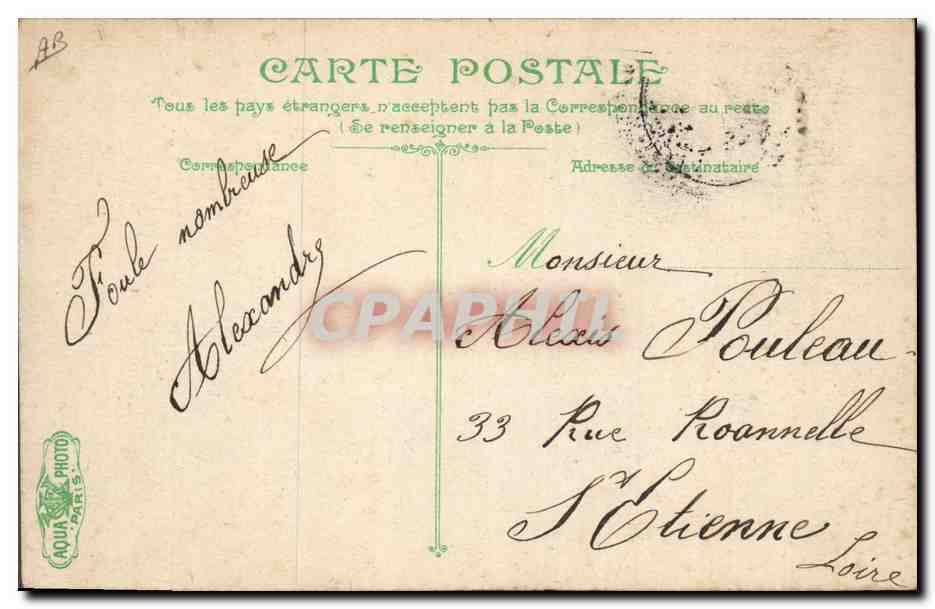 AB
CARTE POSTALE
Tous les pays étrangers n'acceptent pas la Correspondance au recto
(Se renseigner à la Poste)
Correspondance
Adresse du Destinataire
Foule nombreuse
Alexandre
Monsieur
Alexis Pouleau
33 Rue Roannelle
St Etienne
Loire
CPAPHIL
AQUA PHOTO
PARIS